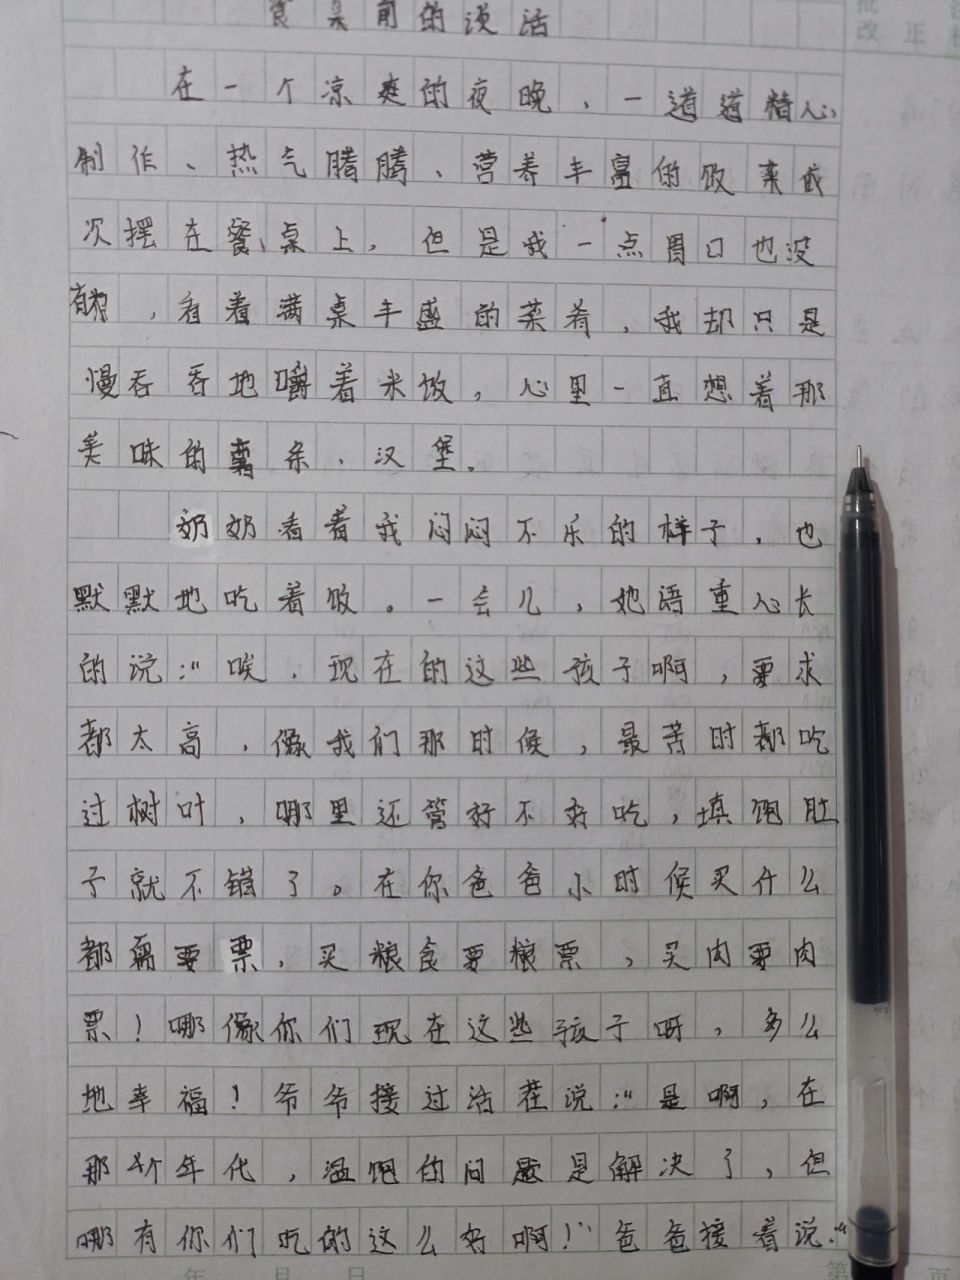 食桌前的谈话
在一个凉爽的夜晚、一道道精心
制作、热气腾腾、营养丰富的饭菜依
次摆在餐桌上，但是我一点胃口也没
有，看着满桌丰盛的菜肴，我却只是
慢吞吞地嚼着米饭，心里一直想着那
美味的薯条、汉堡。
奶奶看着我闷闷不乐的样子，也
默默地吃着饭。一会儿，她语重心长
的说："唉，现在的这些孩子啊，要求
都太高，像我们那时候，最苦时都吃
过树叶，哪里还管好不好吃，填饱肚
子就不错了。在你爸爸小时候买什么
都需要票，买粮食要粮票，买肉要肉
票！哪像你们现在这些孩子呀，多么
地幸福！爷爷接过话茬说："是啊，在
那个年代，温饱的问题是解决了，但
哪有你们吃的这么好啊！"爸爸接着说："
批
改 正
年 月 日 第 页